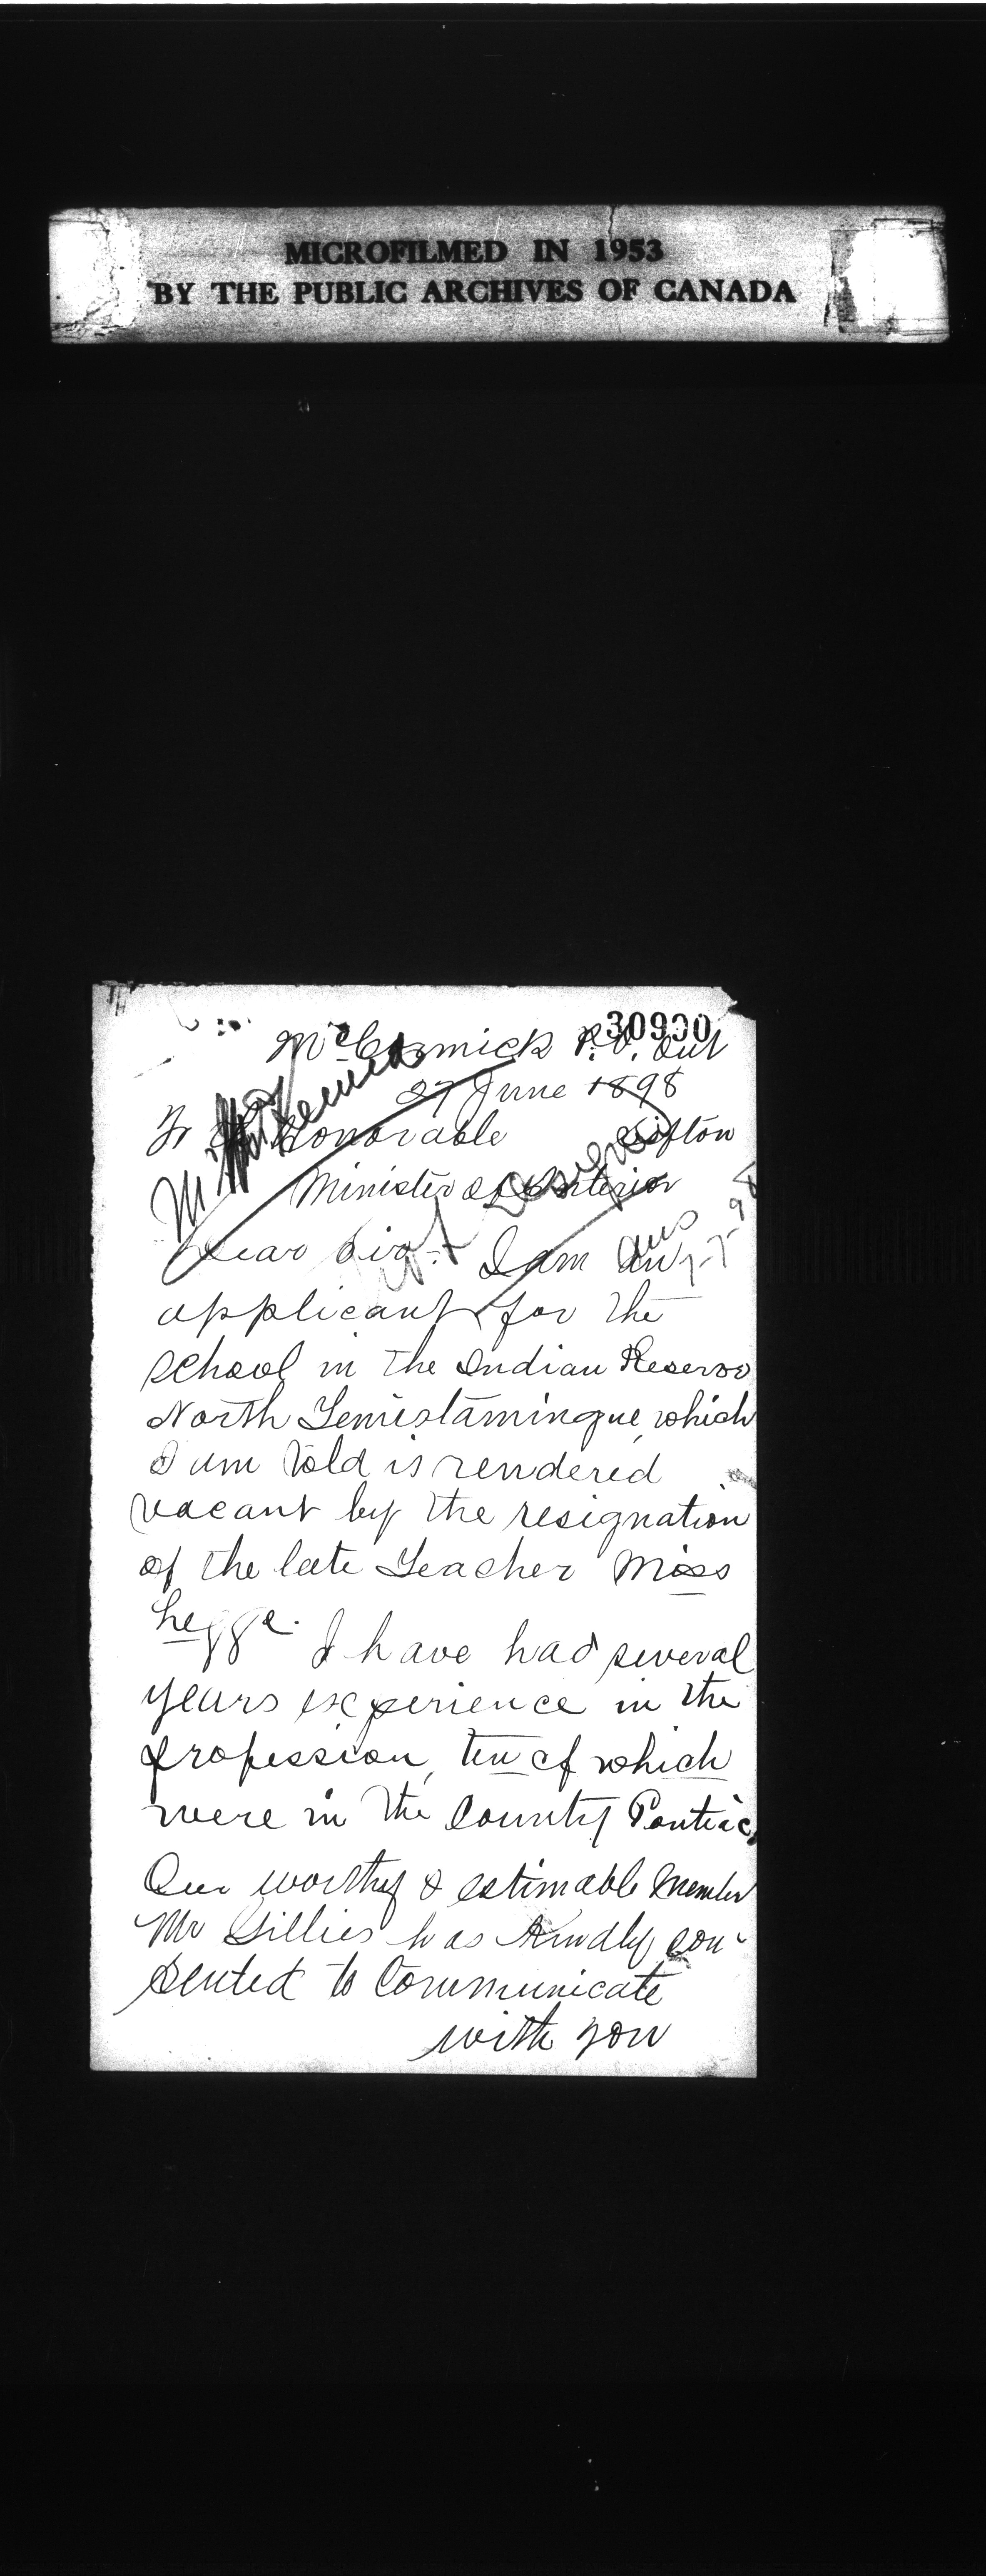 MICROFILMED IN 1953
BY THE PUBLIC ARCHIVES OF CANADA
30930
McCormick P.O. Ont
27 June 1898
To Honorable Sifton
Minister of Interior
Dear Sir:- I am an
applicant for the
school in the Indian Reserve
North Temistamingue, which
I am told is rendered
vacant by the resignation
of the late Teacher Miss
Legge. I have had several
years experience in the
profession, ten of which
were in the County Pontiac,
Our worthy & estimable Member
Mr Gillies has kindly con-
sented to Communicate
with you